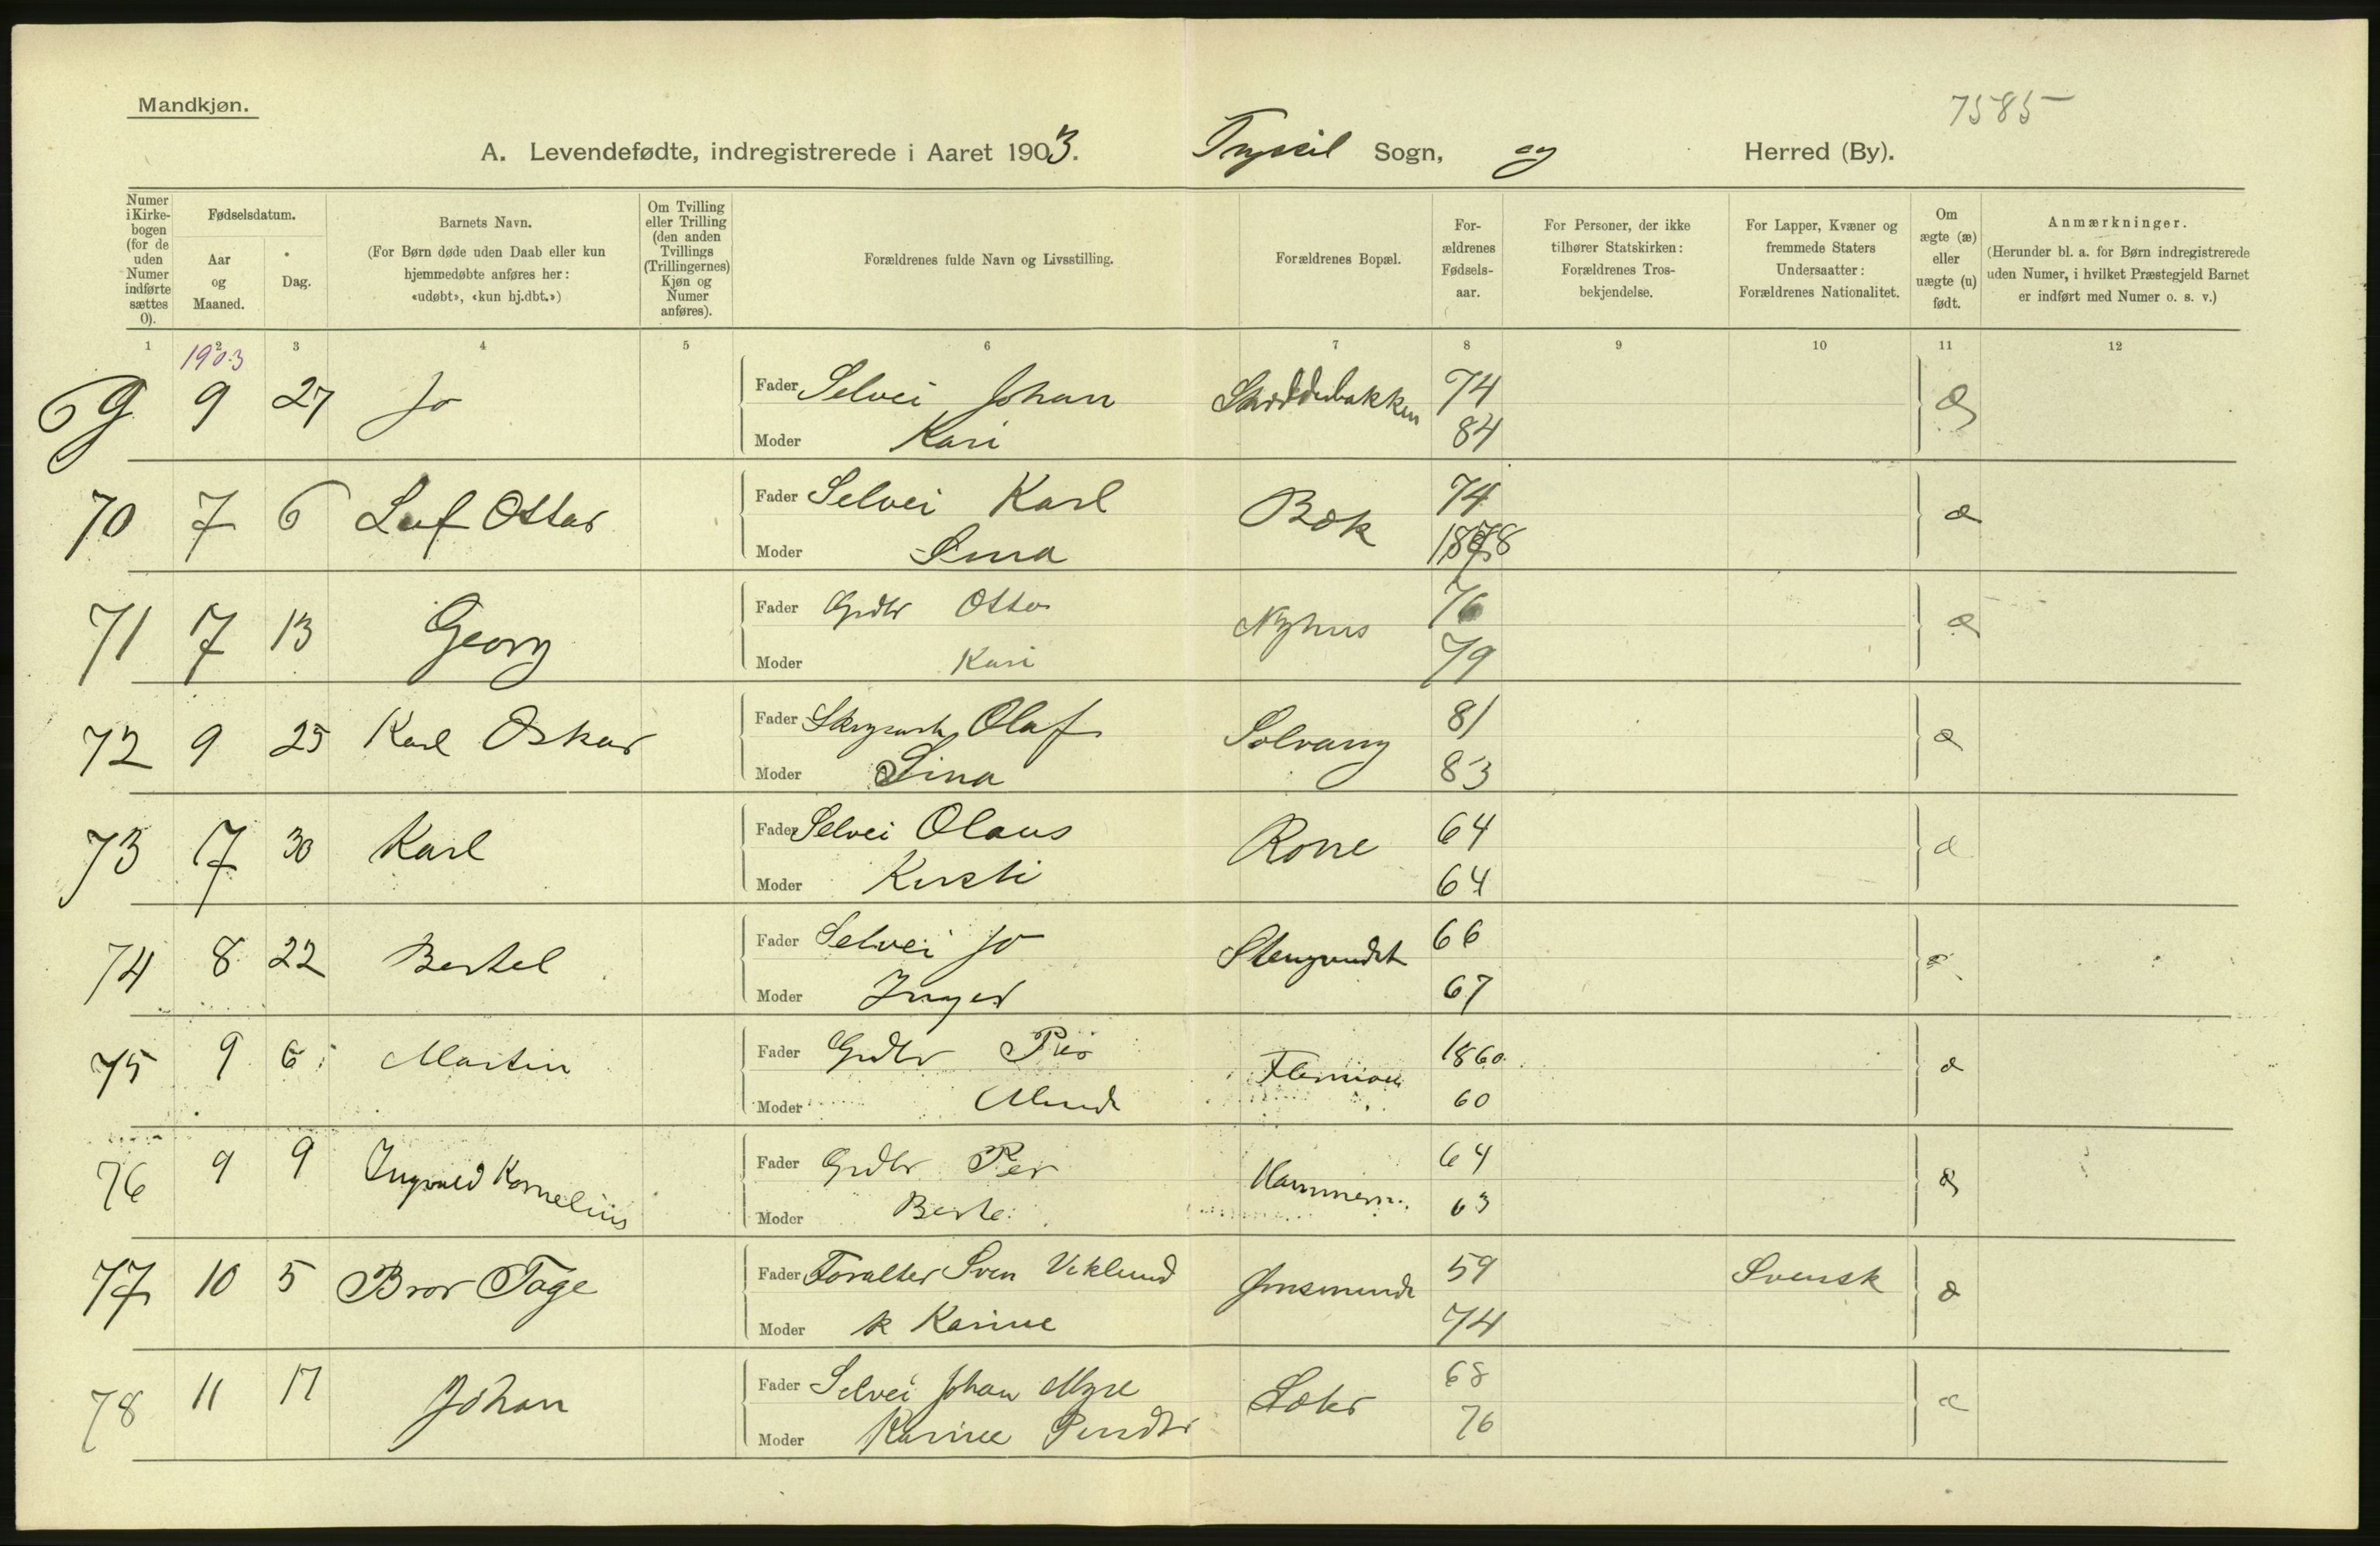 Mandkjøn.
7585
A. Levendefødte, indregistrerede i Aaret 1903. Trysil Sogn, og Herred (By).
Numer i Kirke-bogen (for de uden Numer indførte sættes 0).
Fødselsdatum.
Aar og Maaned.
Dag.
Barnets Navn.
(For Børn døde uden Daab eller kun hjemmedøbte anføres her: «udøbt», «kun hj.dbt.»)
Om Tvilling eller Trilling (den anden Tvillings (Trillingernes) Kjøn og Numer anføres).
Forældrenes fulde Navn og Livsstilling.
Forældrenes Bopæl.
For-ældrenes Fødsels-aar.
For Personer, der ikke tilhører Statskirken: Forældrenes Tros-bekjendelse.
For Lapper, Kvæner og fremmede Staters Undersaatter: Forældrenes Nationalitet.
Om ægte (æ) eller uægte (u) født.
Anmærkninger.
(Herunder bl. a. for Børn indregistrerede uden Numer, i hvilket Præstegjeld Barnet er indført med Numer o. s. v.)
1 2 3 4 5 6 7 8 9 10 11 12
1903
69 9 27 Jo Fader Selvei Johan 74 æ
Moder Kari 84
70 7 6 Leif Ottar Fader Selvei Karl Bæk 74 æ
Moder Lina 1878
71 7 13 Georg Fader Grdbr Otto Nyhus 76 æ
Moder Kari 79
72 9 25 Karl Oskar Fader Olaf Solvang 81 æ
Moder Lina 83
73 7 30 Karl Fader Selvei Olaus 64 æ
Moder Kirsti 64
74 8 22 Bertel Fader Selvei Jo 66 æ
Moder Inger 67
75 9 6 Martin Fader Grdbr Per 1860 æ
Moder 60
76 9 9 Ingvald Kornelius Fader Grdbr Per 64 æ
Moder Berte 63
77 10 5 Bror Tage Fader Sven Viklund 59 Svensk æ
Moder k Karine 74
78 11 17 Johan Fader Selvei Johan Myre 68 æ
Moder Karine 76